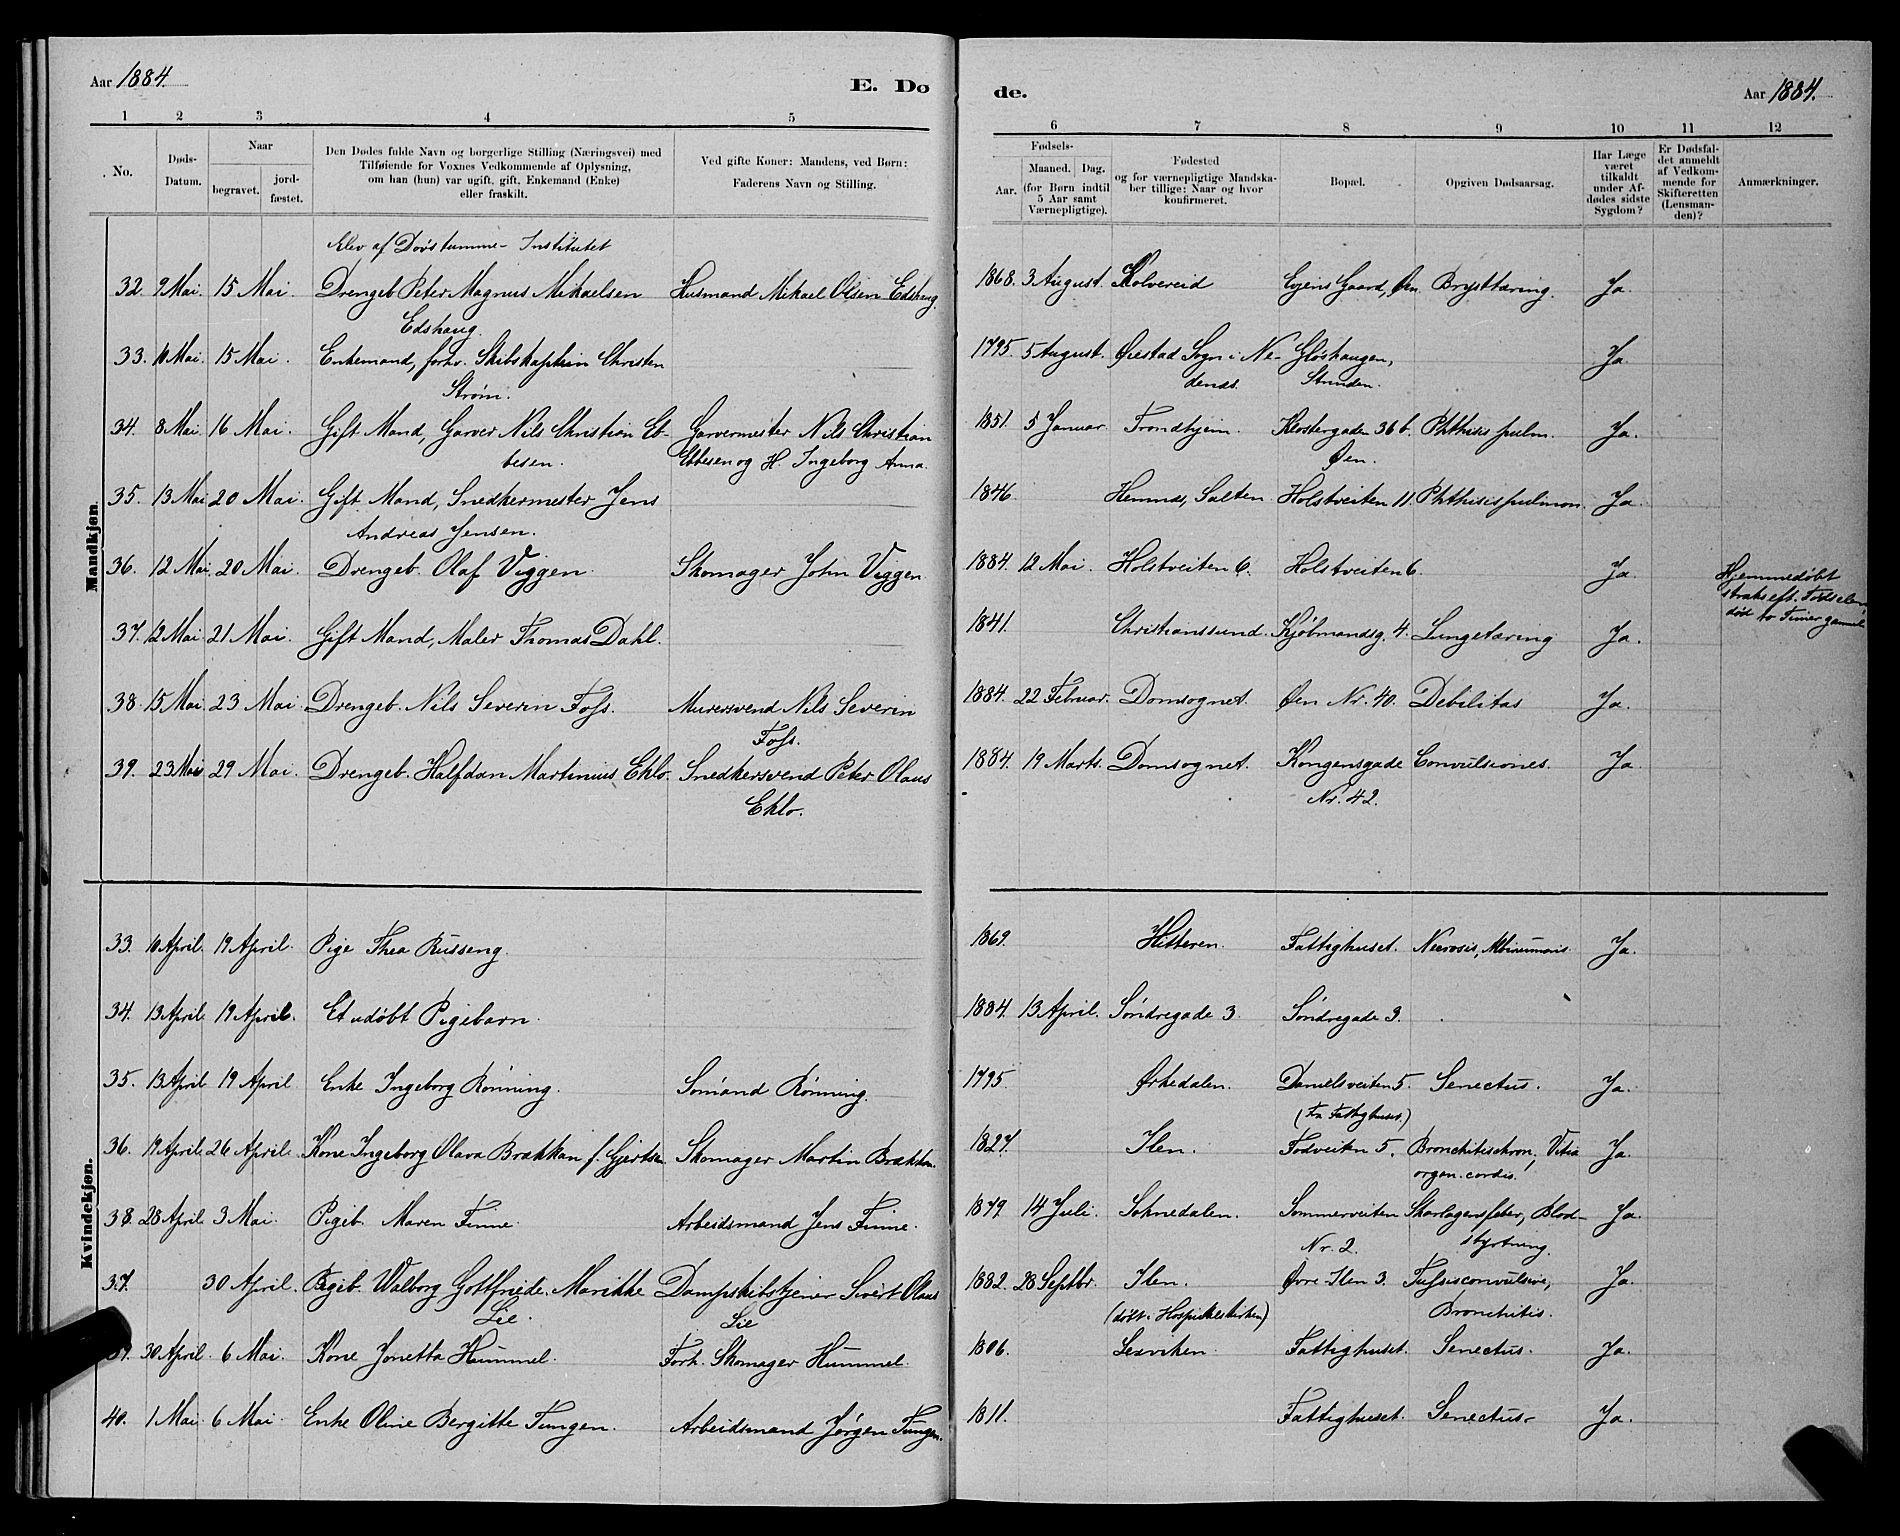 Aar 1884. E. Dø
de. Aar 1884.
1 2 3 4 5
6 7 8 9 10 11 12
No. Døds-Datum. Naar begravet. jord-fæstet. Den Dødes fulde Navn og borgerlige Stilling (Næringsvei) med Tilføiende for Voxnes Vedkommende af Oplysning, om han (hun) var ugift, gift, Enkemand (Enke) eller fraskilt. Ved gifte Koner: Mandens, ved Børn: Faderens Navn og Stilling.
Fødsels- Aar. Maaned. Dag. (for Børn indtil 5 Aar samt Værnepligtige). Fødested og for værnepligtige Mandskaber tillige: Naar og hvor konfirmeret. Bopæl. Opgiven Dødsaarsag. Har Læge været tilkaldt under Afdødes sidste Sygdom? Er Dødsfaldet anmeldt af Vedkommende for Skifteretten (Lensmanden)? Anmærkninger.
Mandkjøn.
Elev af Døvstumme-Institutet
32. 9 Mai. 15 Mai Drengeb. Peter Magnus Mikaelsen Husmand Mikael Olsen Edshaug. 1868. 3 August. Kolvereid Evjens Gaard, Øen Brysttæring. Ja
Edshaug.
33. 10 Mai. 15 Mai. Enkemand, forhv. Skibskaptein Christen 1795. 5 August. Øiestad Sogn i Ne- Gløshaugen, Ja
Strøm. denæs. Strinden.
34. 8 Mai. 16 Mai. Gift Mand, Garver Nils Christian Eb- Garvermester Nils Christian 1851. 5 Januar. Trondhjem. Klostergaden 36 b. Phthisis pulm. Ja.
besen. Ebbesen og H. Ingeborg Anna. Øen.
35. 13 Mai 20 Mai. Gift Mand, Snedkermester Jens 1846 Hemnæs, Salten Holstveiten 11. Phthisis pulmon. Ja
Andreas Jensen.
36. 12 Mai. 20 Mai. Drengeb. Olaf Viggen. Skomager John Viggen. 1884. 12 Mai. Holstveiten 6. Holstveiten 6. Ja. Hjemmedøbt
straks eft. Fødselen,
død to Timer gammel
37. 12 Mai 21 Mai. Gift Mand, Maler Thomas Dahl. 1841. Christianssund. Kjøbmandsg. 4. Lungetæring Ja.
38. 15 Mai. 23 Mai Drengeb. Nils Severin Foss. Murersvend Nils Severin 1884. 22 Februar. Domsognet. Øen Nr. 40. Debilitas Ja.
Foss.
39. 23 Mai 29 Mai. Drengeb. Halfdan Martinius Eklo. Snedkersvend Peter Olaus 1884. 19 Marts. Domsognet. Kongensgade Convulsiones. Ja
Eklo. Nr. 42.
Kvindekjøn.
33. 10 April. 19 April. Pige Thea Russeng. 1869. Hitteren. Fattighuset. Necrosis, Ja.
34. 13 April. 19 April. Et udøbt Pigebarn. 1884. 13 April. Søndregade 3. Søndregade 3.
35. 13 April 19 April Enke Ingeborg Rønning. Sømand Rønning. 1795. Ørkedalen. Danielsveiten 5. Senectus. Ja.
(Fra Fattighuset.)
36. 19 April. 26 April. Kone Ingeborg Olava Brækkan f. Gjertsen Skomager Martin Brækkan. 1827. Ilen. Fodveiten 5. Bronchitis chron., Vitia Ja.
organ. cordis.
38. 28 April. 3 Mai. Pigeb. Maren Finne. Arbeidsmand Jens Finne. 1879. 14 Juli. Soknedalen. Sommerveiten Skarlagensfeber, Blod- Ja.
Nr. 2. styrtning.
37. 30 April. Pigeb. Walborg Gottfriede Marikke Dampskibstjener Sivert Olaus 1882. 28 Septbr. Ilen. Øvre Ilen 3. Tussis convulsiva, Ja.
Lie. Lie (døbt i Hospitalskirken) Bronchitis.
39. 30 April. 6 Mai. Kone Jonetta Hummel. Forh. Skomager Hummel. 1806. Lexviken. Fattighuset. Senectus. Ja.
40. 1 Mai. 6 Mai. Enke Oline Bergitte Tungen. Arbeidsmand Jørgen Tungen. 1811. Fattighuset. Senectus. Ja.